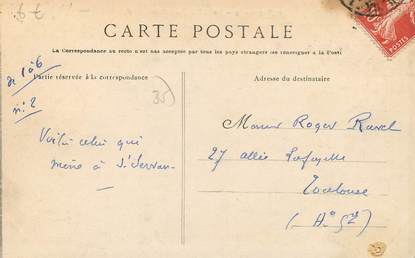 CARTE POSTALE
La Correspondance au recto n'est pas acceptée par tous les pays étrangers (se renseigner à la Poste)
Partie réservée à la correspondance
Adresse du destinataire
de 1 à 6
n: 2
35
Voilà celui qui
mène à St Servan
Monsieur Roger Ravel
27 allées Lafayette
Toulouse
(Hte Gne)